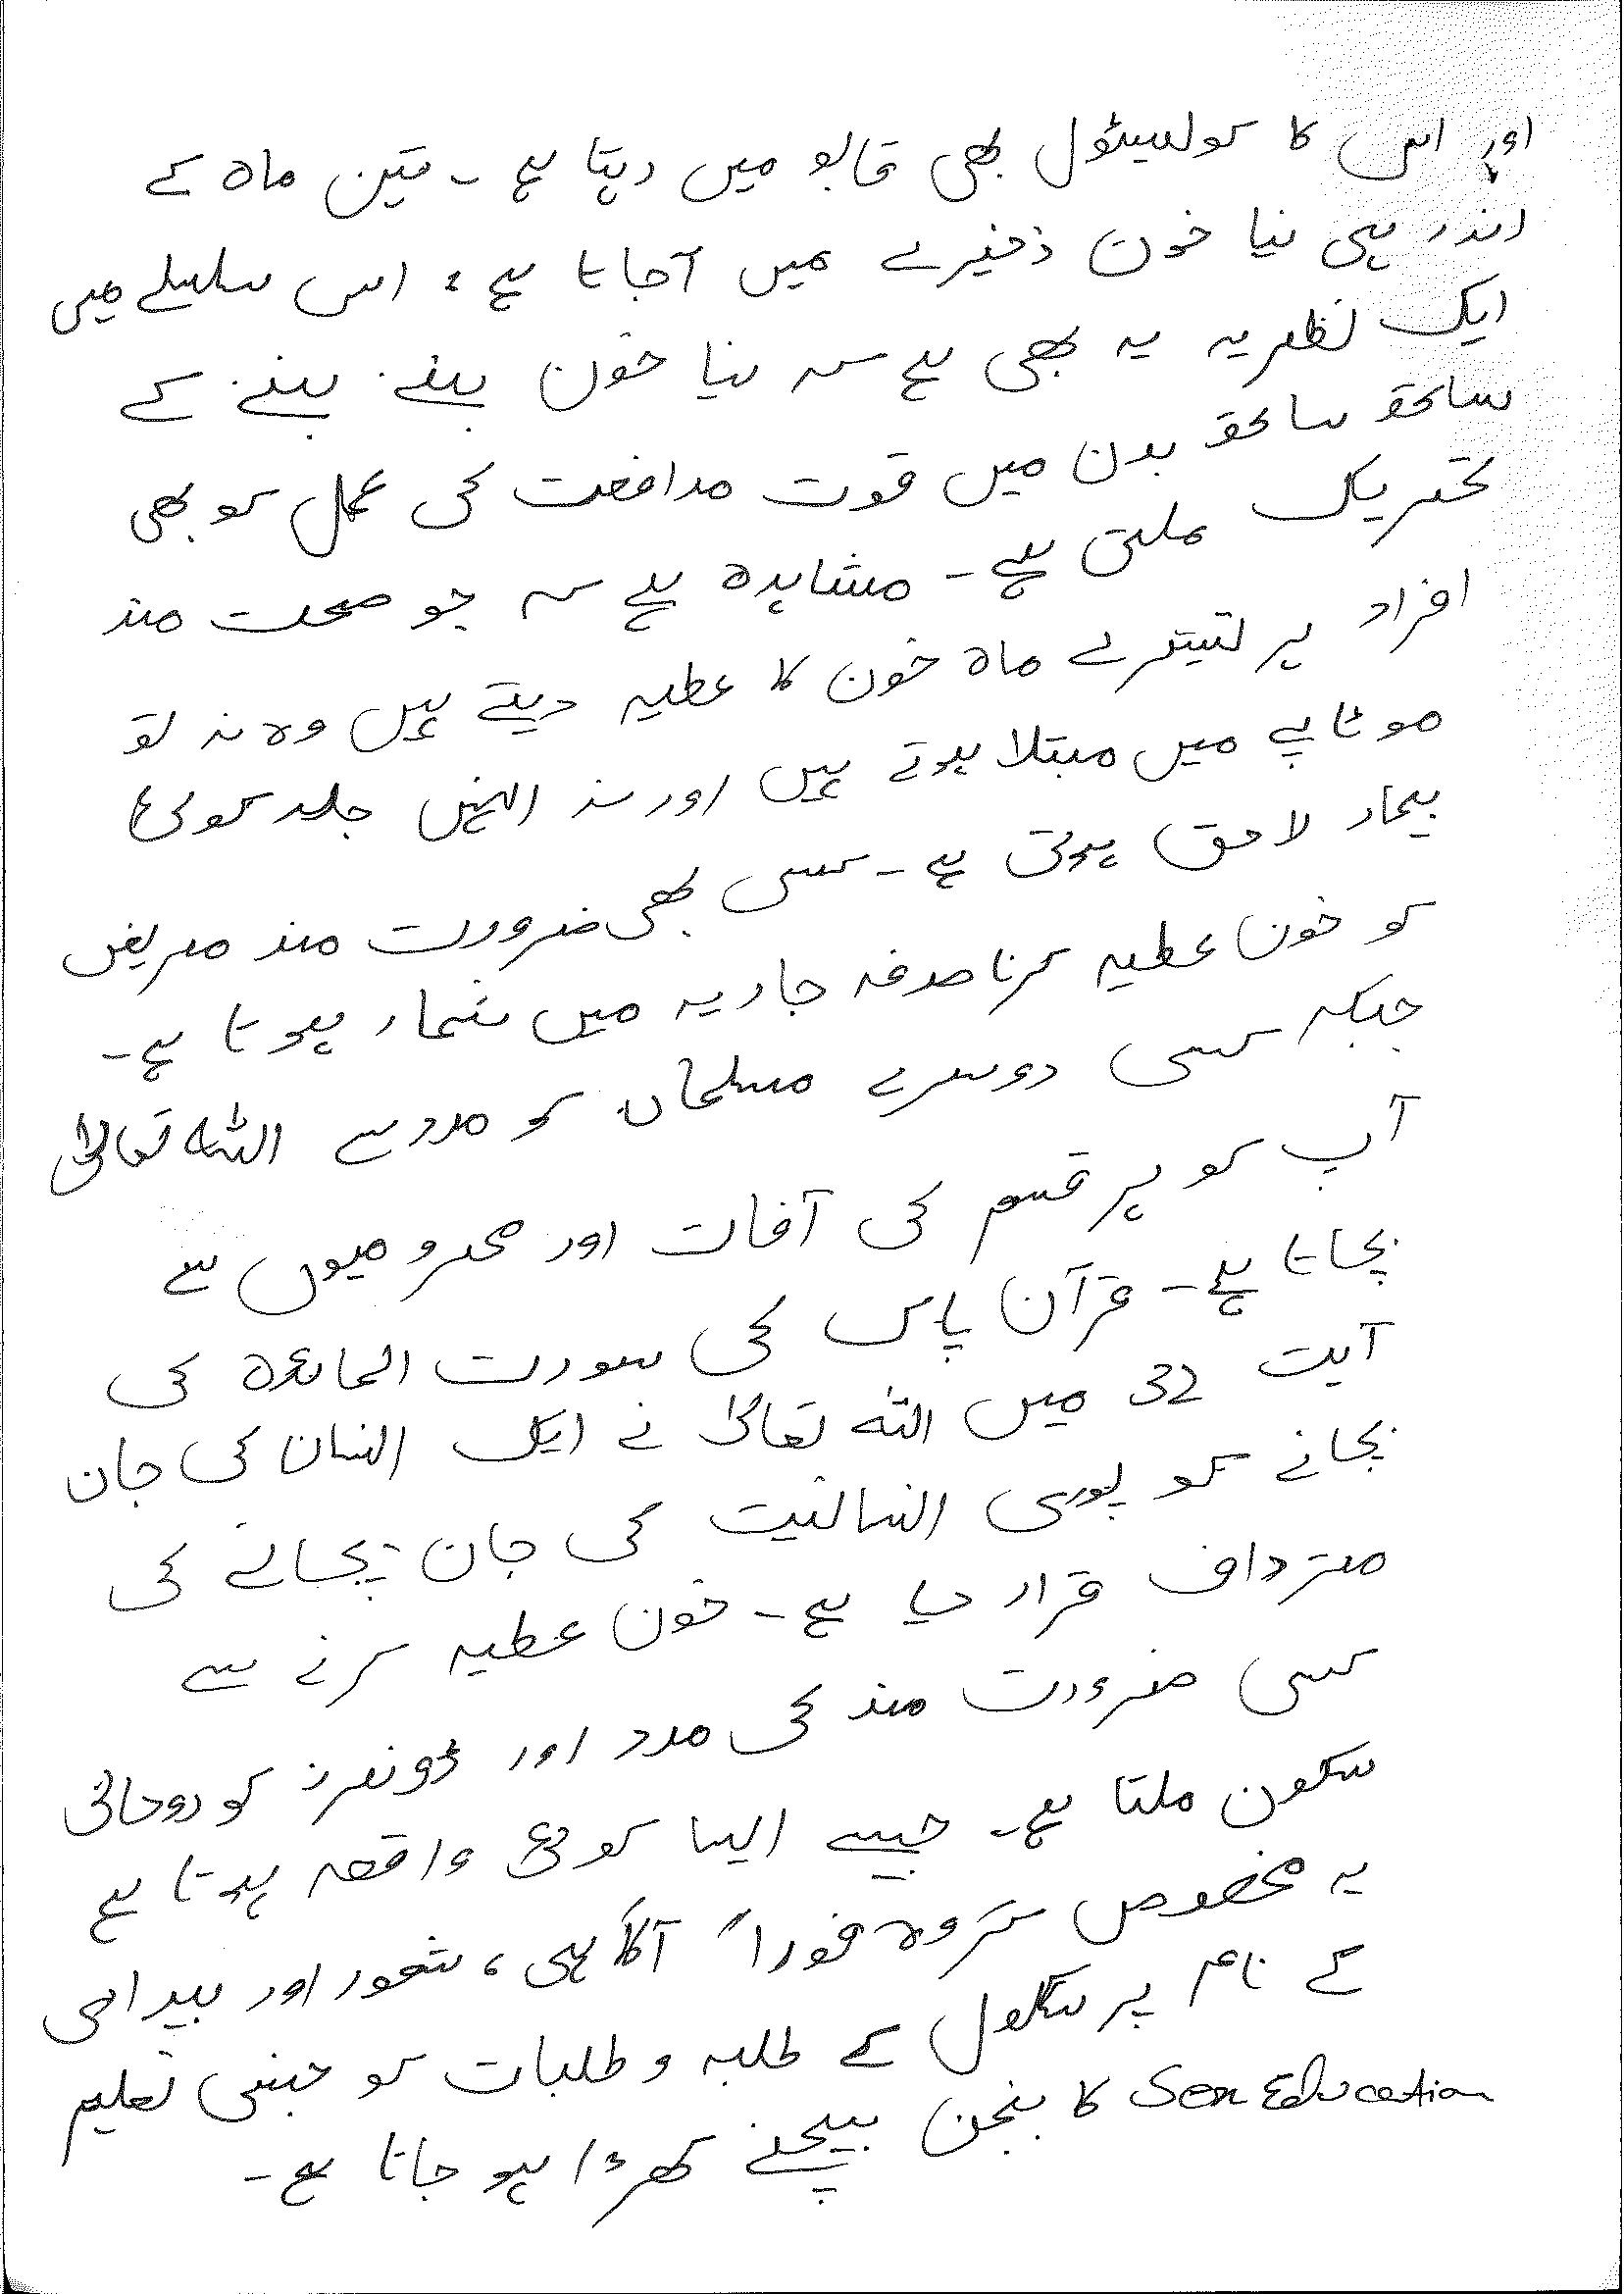 اور اس کا کولیسٹول بھی قابو میں رہتا ہے ۔ تین ماہ کے
اندر ہی نیا خون ذخیرے میں آجاتا ہے، اس سلسلے میں
ایک نظریہ یہ بھی ہے کہ نیا خون بننے بننے کے
ساتھ ساتھ بدن میں قوت مدافعت کی عمل کو بھی
تحریک ملتی ہے ۔ مشاہدہ ہے کہ جو صحت مند
افراد ہر تیسرے ماہ خون کا عطیہ دیتے ہیں وہ نہ تو
موٹاپے میں مبتلا ہوتے ہیں اور نہ انہیں جلد کوئی
بیمار لاحق ہوتی ہے ۔ کسی بھی ضرورت مند مریض
کو خون عطیہ کرنا صدقہ جاریہ میں شمار ہوتا ہے ۔
جبکہ کسی دوسرے مسلمان کو مدد سے اللہ تعالیٰ
آپ کو ہر قسم کی آفات اور محرومیوں سے
بچاتا ہے ۔ قرآن پاک کی سورت المائدہ کی
آیت 32 میں اللہ تعالیٰ نے ایک انسان کی جان
بچانے کو پوری انسانیت کی جان بچانے کی
متردाف قرار دیا ہے ۔ خون عطیہ کرنے سے
کسی ضرورت مند کی مدد اور ڈونرز کو روحانی
سکون ملتا ہے ۔ جیسے ایسا کوئی واقعہ ہوتا ہے
یہ مخصوص گروہ فوراً آگاہی، شعور اور بیداری
کے نام پر سکول کے طلبہ و طلبات کو جنسی تعلیم
Sex Education کا بنجن بیچنے کھڑا ہو جاتا ہے ۔